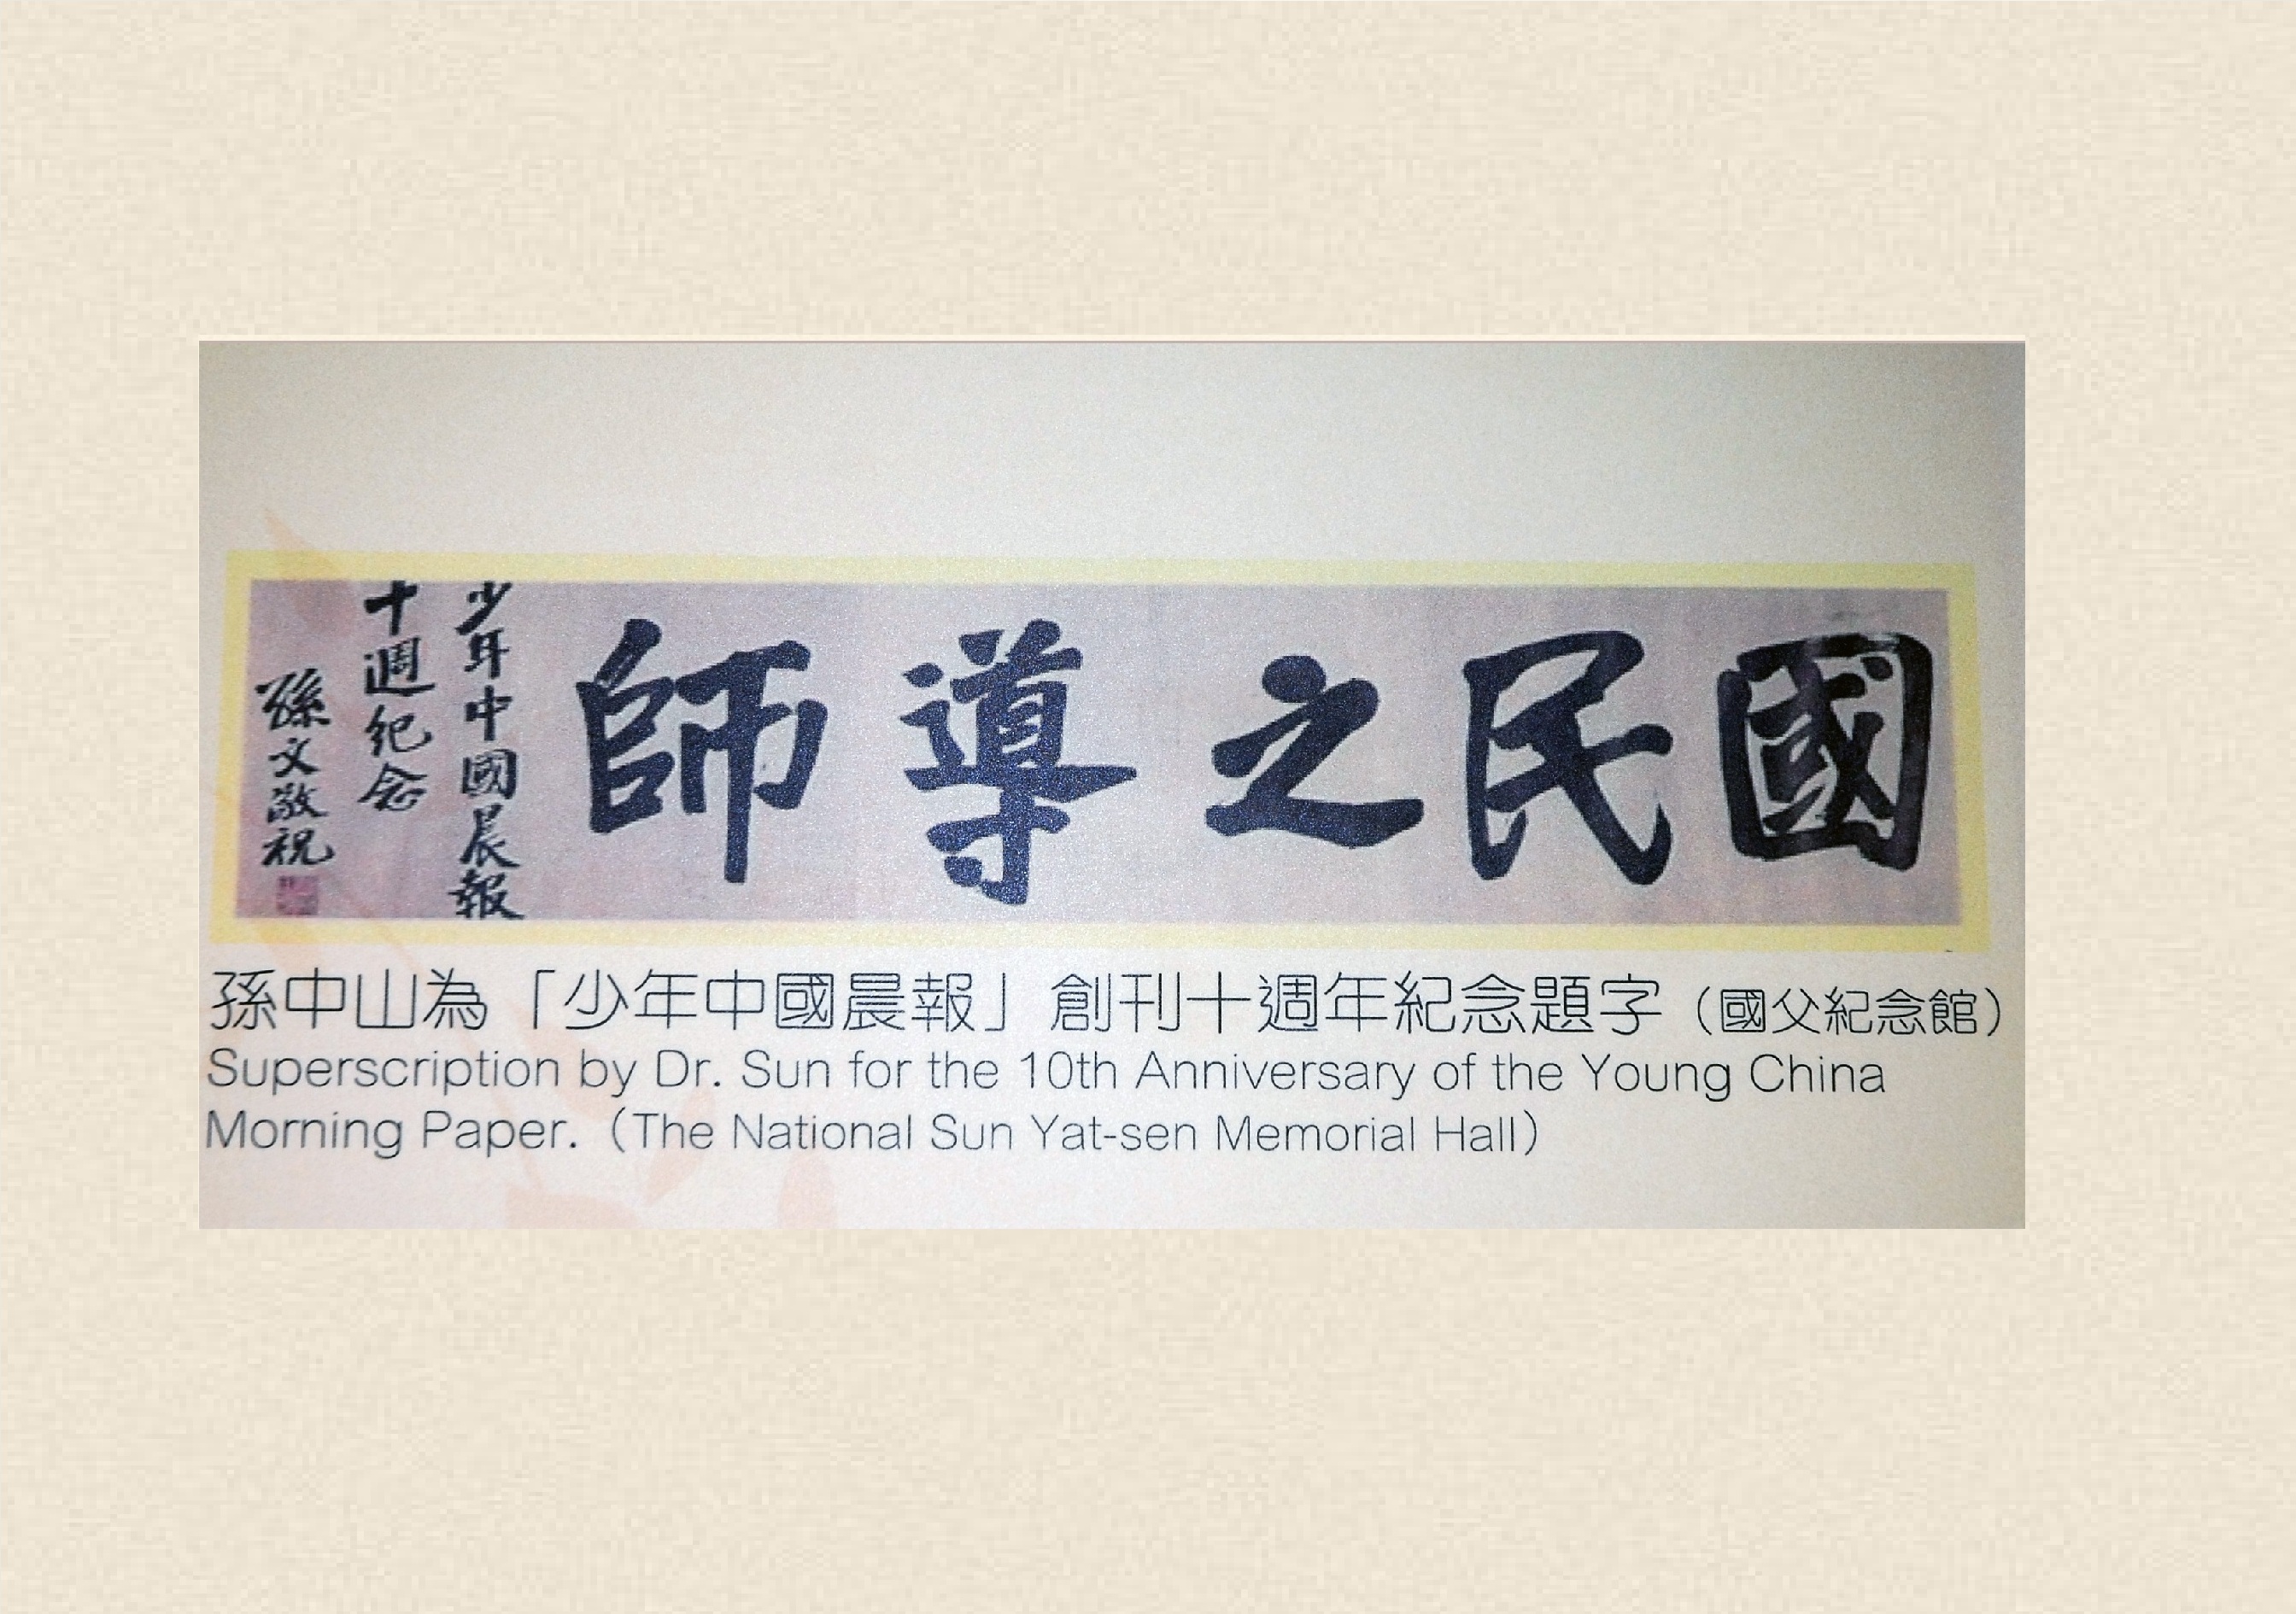 國民之導師
少年中國晨報
十週紀念
孫文敬祝
孫中山為「少年中國晨報」創刊十週年紀念題字（國父紀念館）
Superscription by Dr. Sun for the 10th Anniversary of the Young China
Morning Paper.（The National Sun Yat-sen Memorial Hall）